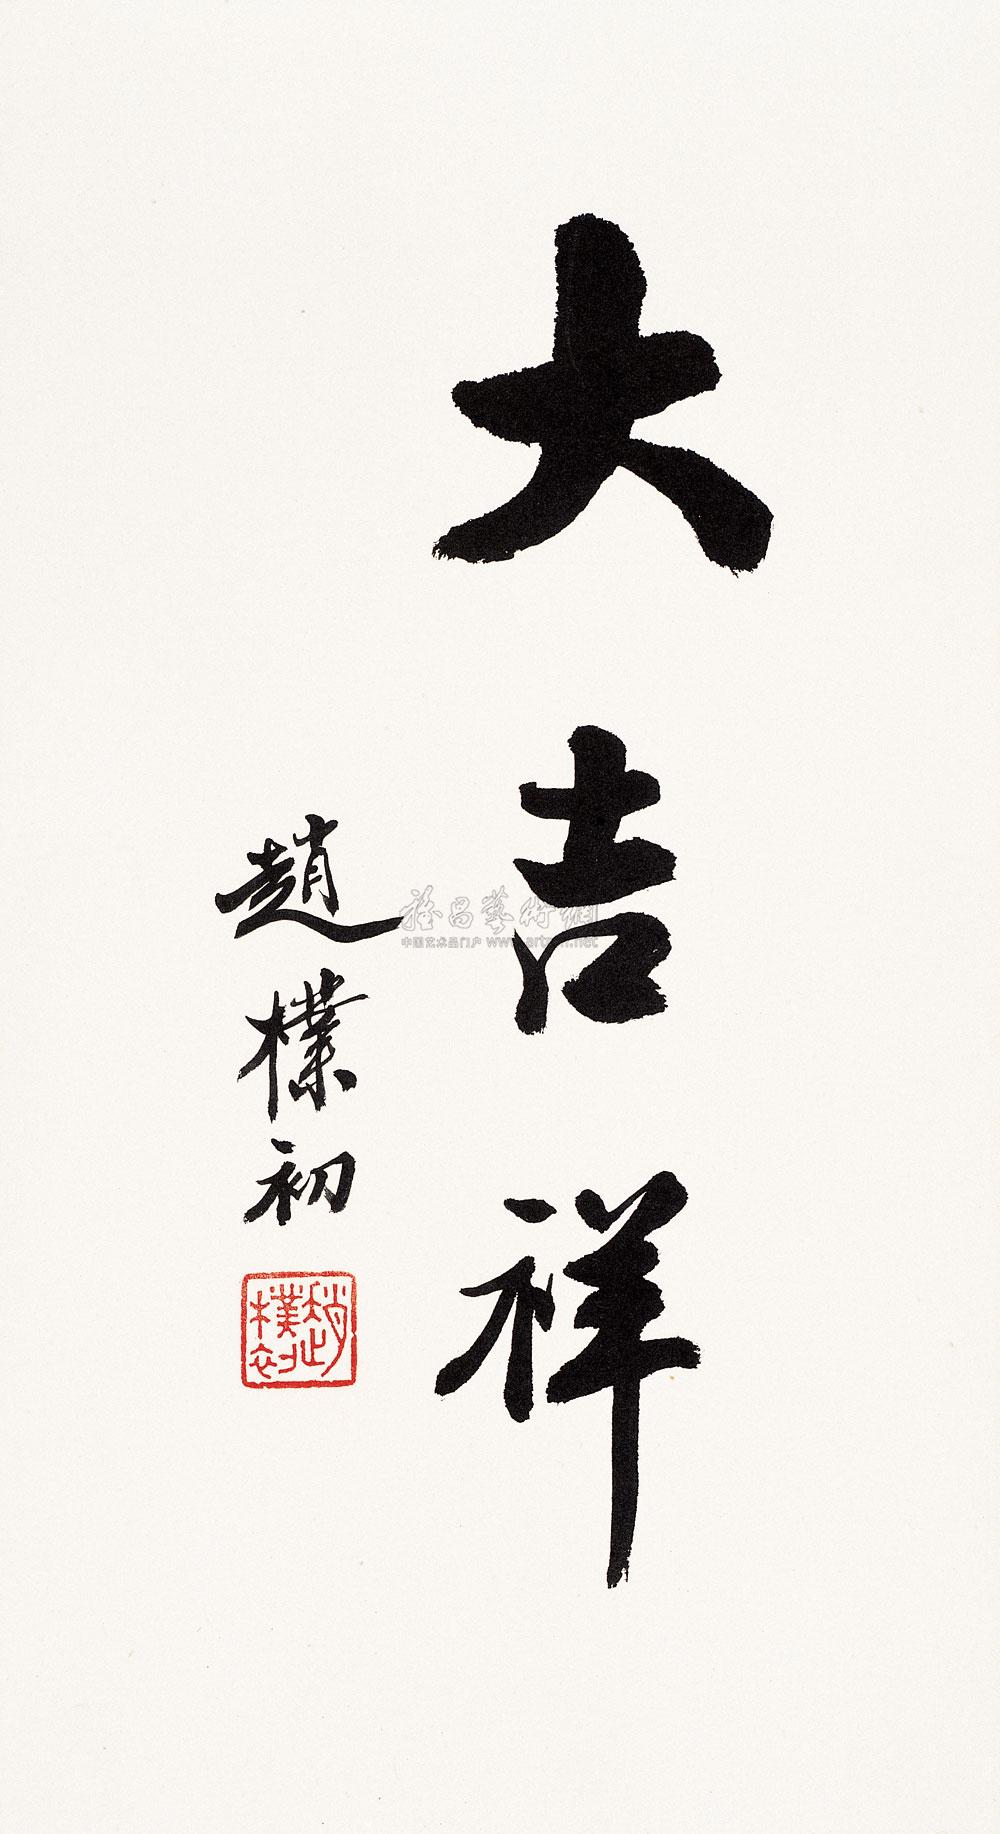 大吉祥
趙樸初
趙樸初
雅昌藝術網
中国艺术品门户 www.artron.net